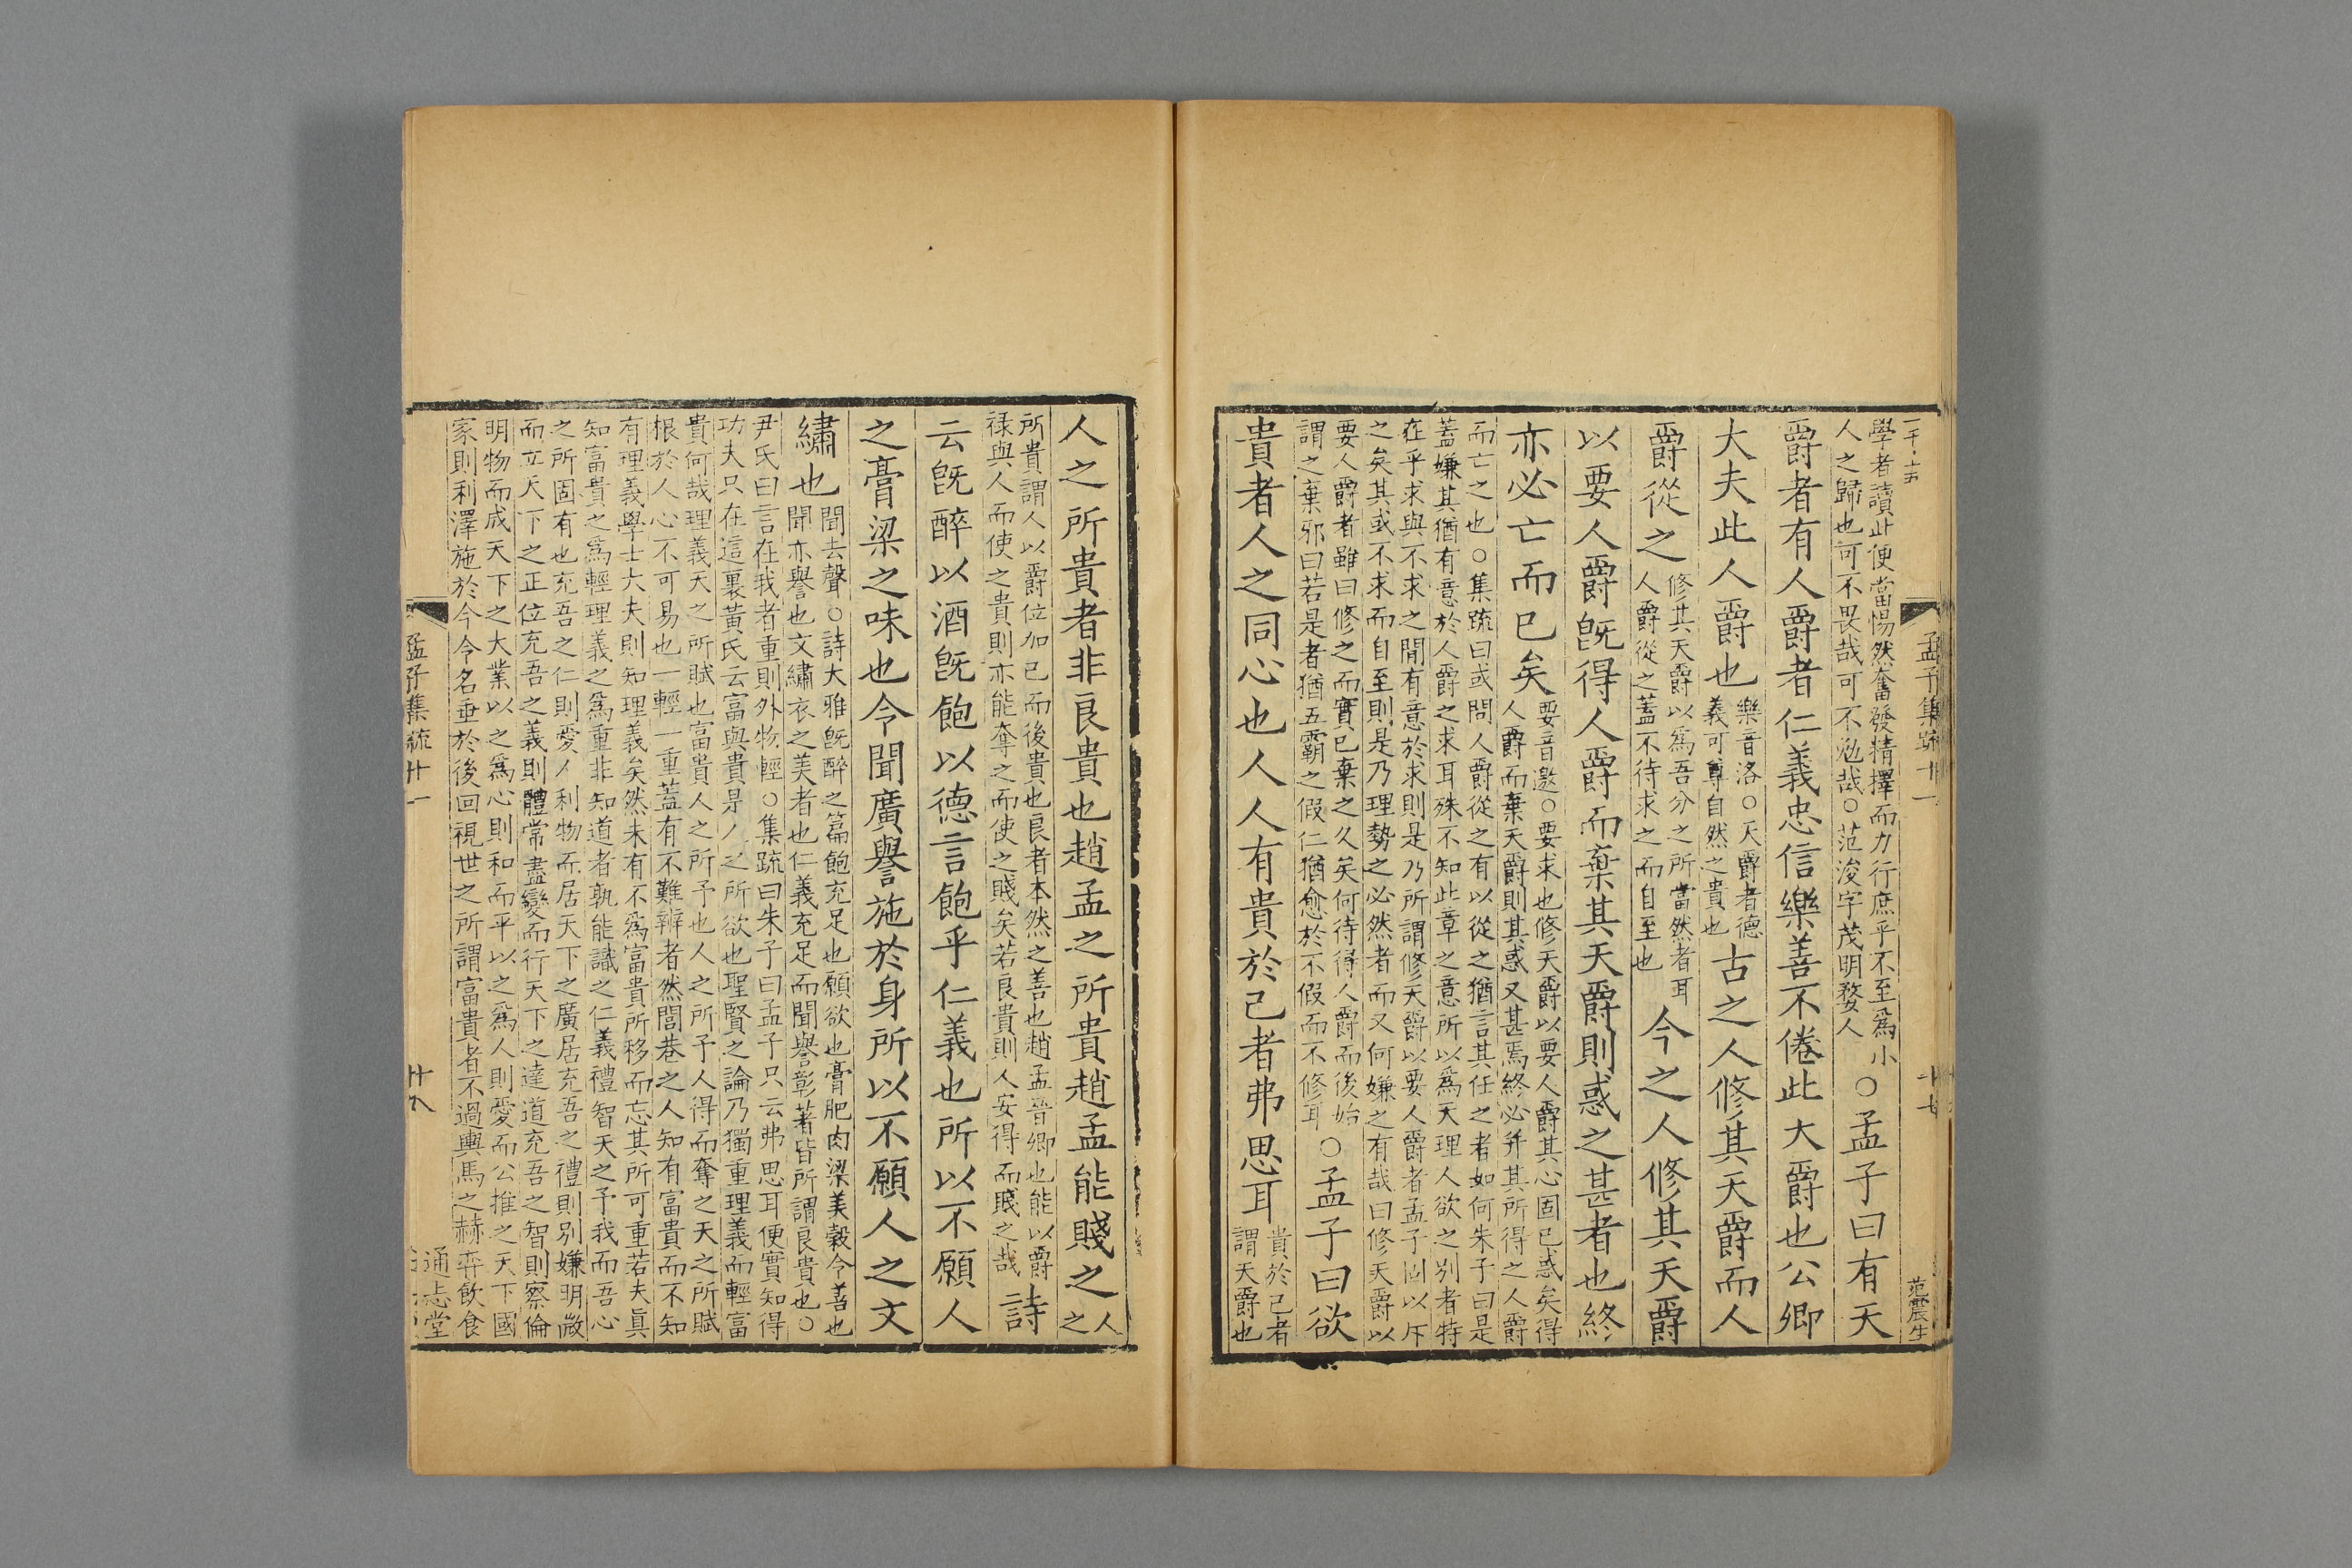 孟子集疏十一
十七
范震生
學者讀此便當惕然奮發精擇而力行庶乎不至爲小
人之歸也可不畏哉可不勉哉○范浚字茂明婺人
○孟子曰有天
爵者有人爵者仁義忠信樂善不倦此大爵也公卿
大夫此人爵也
樂音洛○天爵者德
義可尊自然之貴也
古之人修其天爵而人
爵從之
修其天爵以爲吾分之所當然者耳
人爵從之蓋不待求之而自至也
今之人修其天爵
以要人爵旣得人爵而棄其天爵則惑之甚者也終
亦必亡而已矣
要音邀○要求也修天爵以要人爵其心固已惑矣得
人爵而棄天爵則其惑又甚焉終必并其所得之人爵
而亡之也○集疏曰或問人爵從之有以從之猶言其任之者如何朱子曰是
蓋嫌其猶有意於人爵之求耳殊不知此章之意所以爲天理人欲之別者特
在乎求與不求之閒有意於求則是乃所謂修天爵以要人爵者孟子固以斥
之矣其或不求而自至則是乃理勢之必然者而又何嫌之有哉曰修天爵以
要人爵者雖曰修之而實已棄之久矣何待得人爵而後始
謂之棄邪曰若是者猶五霸之假仁猶愈於不假而不修耳
○孟子曰欲
貴者人之同心也人人有貴於己者弗思耳
貴於己者
謂天爵也
人之所貴者非良貴也趙孟之所貴趙孟能賤之
人
之
所貴謂人以爵位加己而後貴也良者本然之善也趙孟晉卿也能以爵
祿與人而使之貴則亦能奪之而使之賤矣若良貴則人安得而賤之哉
詩
云旣醉以酒旣飽以德言飽乎仁義也所以不願人
之膏粱之味也令聞廣譽施於身所以不願人之文
繡也
聞去聲○詩大雅旣醉之篇飽充足也願欲也膏肥肉粱美穀令善也
聞亦譽也文繡衣之美者也仁義充足而聞譽彰著皆所謂良貴也○
尹氏曰言在我者重則外物輕○集疏曰朱子曰孟子只云弗思耳便實知得
功夫只在這裏黃氏云富與貴是人之所欲也聖賢之論乃獨重理義而輕富
貴何哉理義天之所賦也富貴人之所予也人之所予人得而奪之天之所賦
根於人心不可易也一輕一重蓋有不難辨者然閭巷之人知有富貴而不知
有理義學士大夫則知理義矣然未有不爲富貴所移而忘其所可重若夫眞
知富貴之爲輕理義之爲重非知道者孰能識之仁義禮智天之予我而吾心
之所固有也充吾之仁則愛人利物而居天下之廣居充吾之禮則別嫌明微
而立天下之正位充吾之義則體常盡變而行天下之達道充吾之智則察倫
明物而成天下之大業以之爲心則和而平以之爲人則愛而公推之天下國
家則利澤施於今令名垂於後回視世之所謂富貴者不過輿馬之赫弈飮食
孟子集疏十一
十八
通志堂